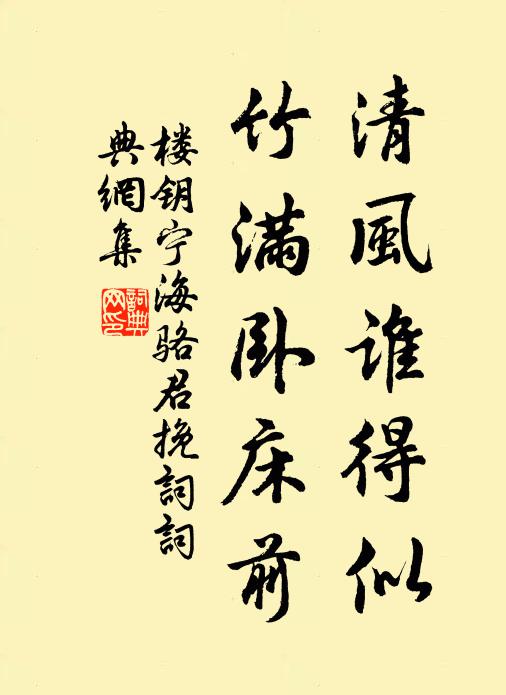 清風誰得似
竹滿卧床前
楼钥宁海骆君挽詞詞
典網集
詞典
网印